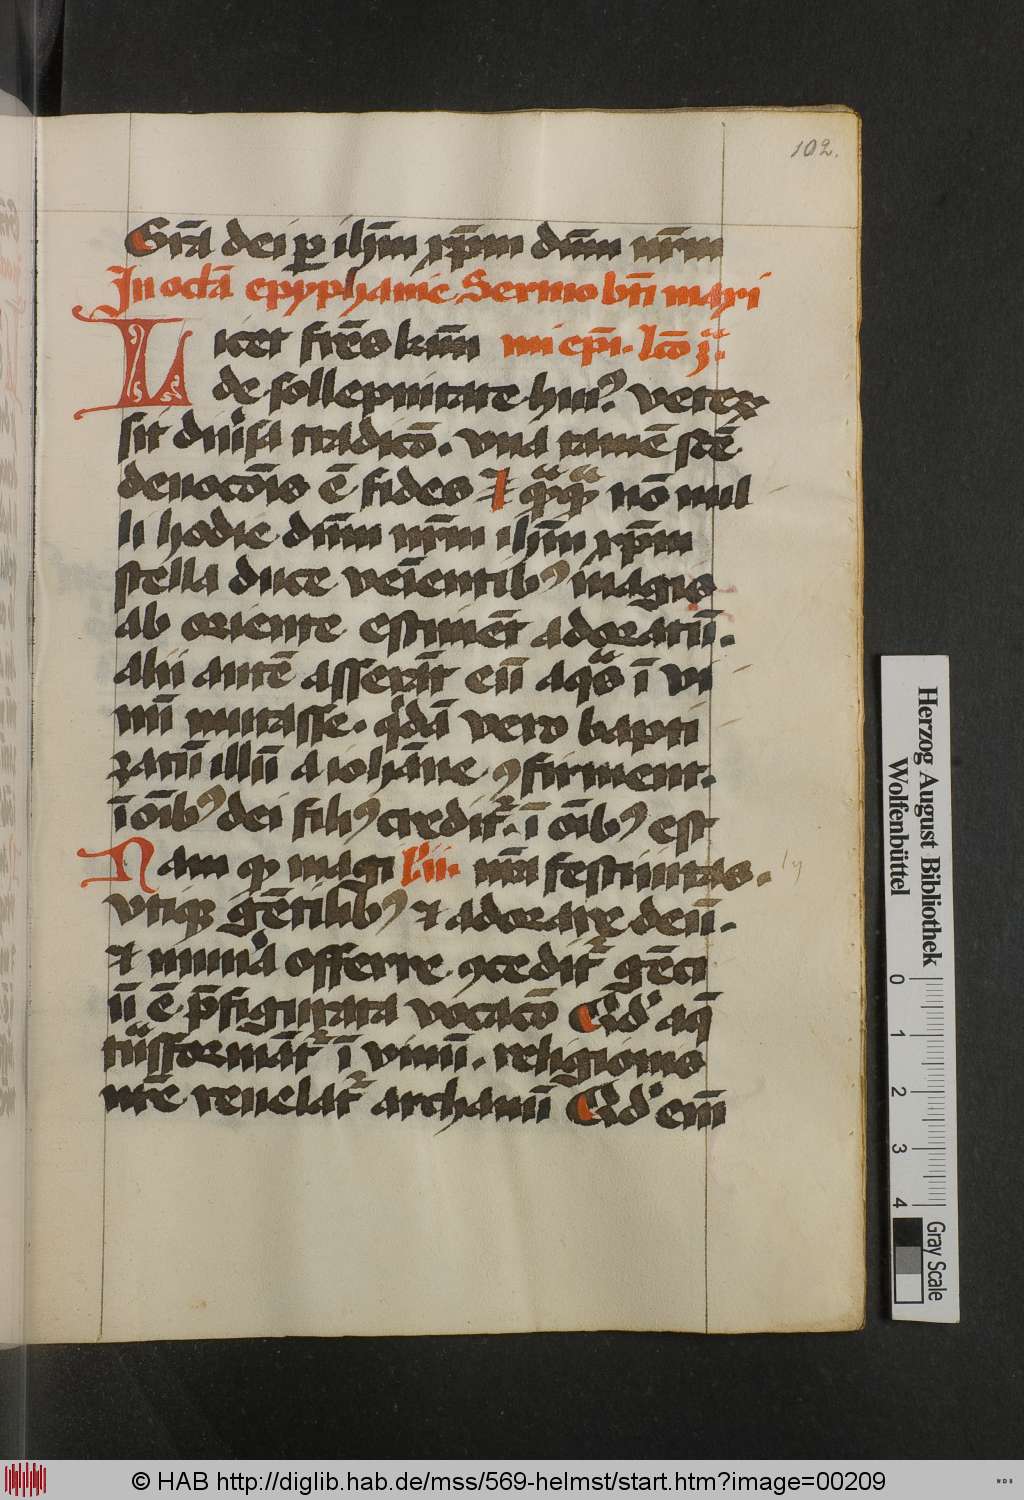 102.
Gr̄a dei per ih̄m xp̄m dn̄m nr̄m
In octā epyphanie Sermo bt̄i maxi
Licet fr̄es km̄i mi ep̄i. lc̄o
de sollepnitate huiꝰ veteꝝ
sit diũsa tradicō. vna tamē sc̄e
deuocōis ē fides ⁊ qͣꝫqͣꝫ nō nul
li hodie dn̄m nr̄m ih̄m xp̄m
stella duce veīentibꝰ magis
ab oriente estimēt adoratū.
alij autē asserāt eū aqͣs ī vi
nū mutasse. qͥdā vero bapti
zatū illū a iohāne ꝯfirment.
ī oībꝰ dei filiꝰ creditʳ. ī oībꝰ est
Nam ꝙ magi nr̄a festiuitas.
vtiqꝫ gētilibꝰ ⁊ adorare deū.
⁊ munͣa offerre ꝯceditʳ gēci
ū ē p̄figurata vocacō Qdͥ aq̄
tͣnsformātʳ ī vinū. religionis
nr̄e reuelatʳ archanū Qdͥ em̄
Herzog August Bibliothek
Wolfenbüttel
0 1 2 3 4
Gray Scale
© HAB http://diglib.hab.de/mss/569-helmst/start.htm?image=00209